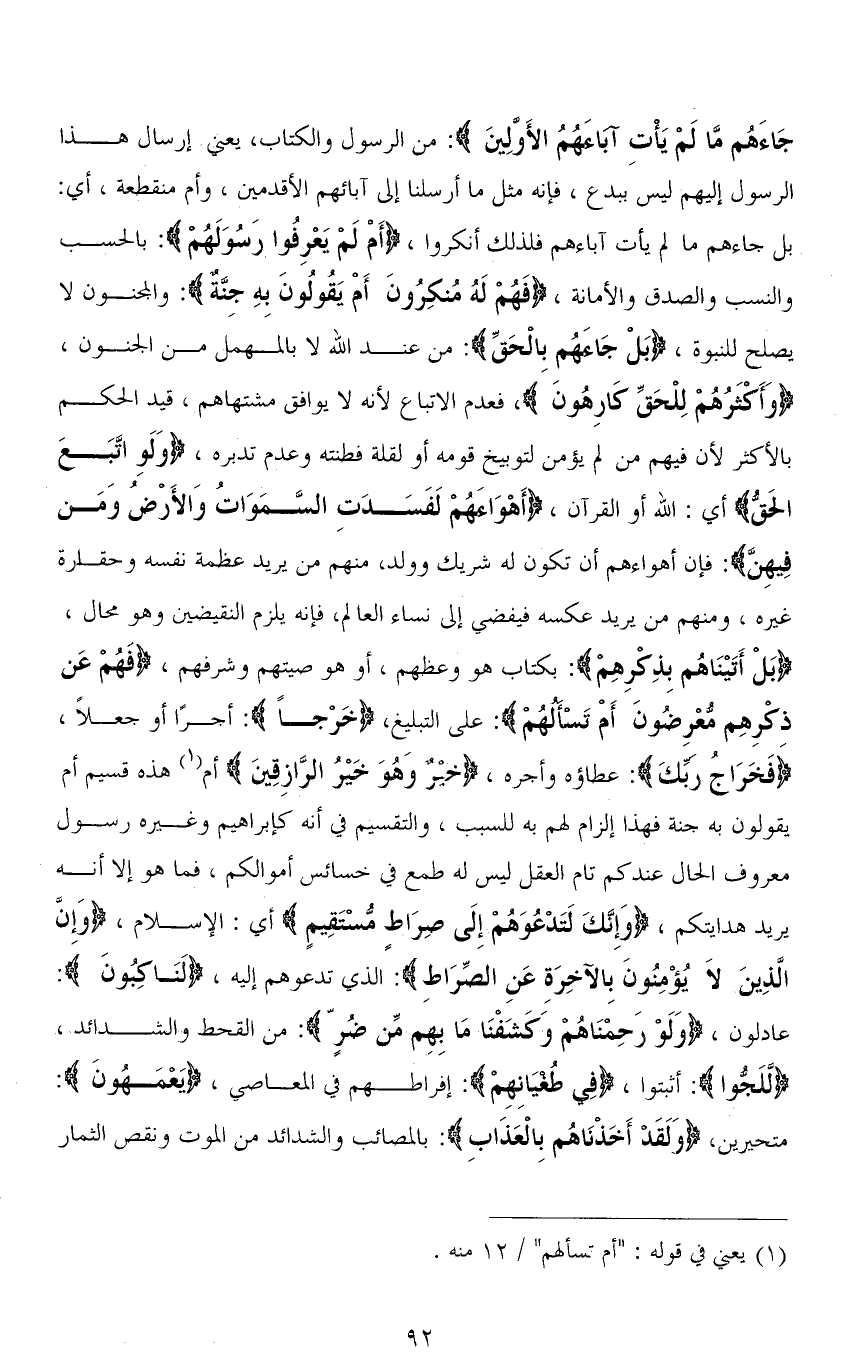 جَاءَهُم مَّا لَمْ يَأْتِ آبَاءَهُمُ الأَوَّلِينَ ﴾: من الرسول والكتاب، يعني إرسال هـــذا
الرسول إليهم ليس ببدع ، فإنه مثل ما أرسلنا إلى آبائهم الأقدمين ، وأم منقطعة ، أي:
بل جاءهم ما لم يأت آباءهم فلذلك أنكروا ، ﴿أَمْ لَمْ يَعْرِفُوا رَسُولَهُمْ﴾: بالحسب
والنسب والصدق والأمانة ، ﴿فَهُمْ لَهُ مُنكِرُونَ أَمْ يَقُولُونَ بِهِ جِنَّةٌ﴾: والمجنـون لا
يصلح للنبوة ، ﴿بَلْ جَاءَهُم بِالْحَقِّ﴾: من عنـــد الله لا بالمـهمل مـن الجنـون ،
﴿وَأَكْثَرُهُمْ لِلْحَقِّ كَارِهُونَ ﴾، فعدم الاتباع لأنه لا يوافق مشتهاهم ، قيد الحكـــم
بالأكثر لأن فيهم من لم يؤمن لتوبيخ قومه أو لقلة فطنته وعدم تدبره ، ﴿وَلَوِ اتَّبَـــعَ
الحَقُّ﴾ أي : الله أو القرآن ، ﴿أَهْوَاءَهُمْ لَفَسَـــدَتِ السَّمَوَاتُ وَالأَرْضُ وَمَـــن
فِيهِنَّ﴾: فإن أهواءهم أن تكون له شريك وولد، منهم من يريد عظمة نفسه وحقـارة
غيره ، ومنهم من يريد عكسه فيفضي إلى نساء العالم، فإنه يلزم النقيضين وهو محال ،
﴿بَلْ أَتَيْنَاهُم بِذِكْرِهِمْ﴾: بكتاب هو وعظهم ، أو هو صيتهم وشرفهم ، ﴿فَهُمْ عَن
ذِكْرِهِم مُّعْرِضُونَ أَمْ تَسْأَلُهُمْ﴾: على التبليغ، ﴿خَرْجـــاً ﴾: أجـــرًا أو جعـــلاً ،
﴿فَخَرَاجُ رَبِّكَ﴾: عطاؤه وأجره ، ﴿خَيْرٌ وَهُوَ خَيْرُ الرَّازِقِينَ ﴾ أم(١) هذه قسيم أم
يقولون به جنة فهذا إلزام لهم به للسبب ، والتقسيم في أنه كإبراهيم وغـــيره رســـول
معروف الحال عندكم تام العقل ليس له طمع في خسائس أموالكم ، فما هو إلا أنـــه
يريد هدايتكم ، ﴿وَإِنَّكَ لَتَدْعُوَهُمْ إِلَى صِرَاطٍ مُّسْتَقِيمٍ ﴾ أي : الإســـلام ، ﴿وَإِنَّ
الَّذِينَ لاَ يُؤْمِنُونَ بِالآخِرَةِ عَنِ الصِّرَاطِ﴾: الذي تدعوهم إليه ، ﴿لَنَـاكِبُونَ ﴾:
عادلون ، ﴿وَلَوْ رَحِمْنَاهُمْ وَكَشَفْنَا مَا بِهِم مِّن ضُرٍّ ﴾: من القحط والشـــدائد ،
﴿لَّلَجُّوا ﴾: أثبتوا ، ﴿فِي طُغْيَانِهِمْ﴾: إفراطـــهم في المعـاصي ، ﴿يَعْمَـــهُونَ ﴾:
متحيرين، ﴿وَلَقَدْ أَخَذْنَاهُم بِالْعَذَابِ ﴾: بالمصائب والشدائد من الموت ونقص الثمار
(١) يعني في قوله : "أم تسألهم" / ١٢ منه .
٩٢